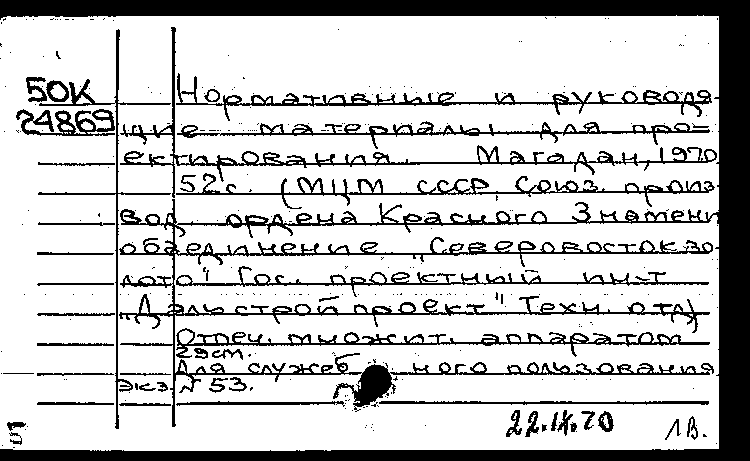 50К
24869
Нормативные и руководя-
щие материалы для про-
ектирования. Магадан, 1970
52с. (МЦМ СССР. Союз. произ-
вод. ордена Красного Знамени
объединение „Северовостокзо-
лото" Гос. проектный ин-т
„Дальстройпроект" Техн. отд)
Отпеч. множит. аппаратом
29см.
Для служебного пользования
экз. N 53.
22.IX.70 ЛВ.